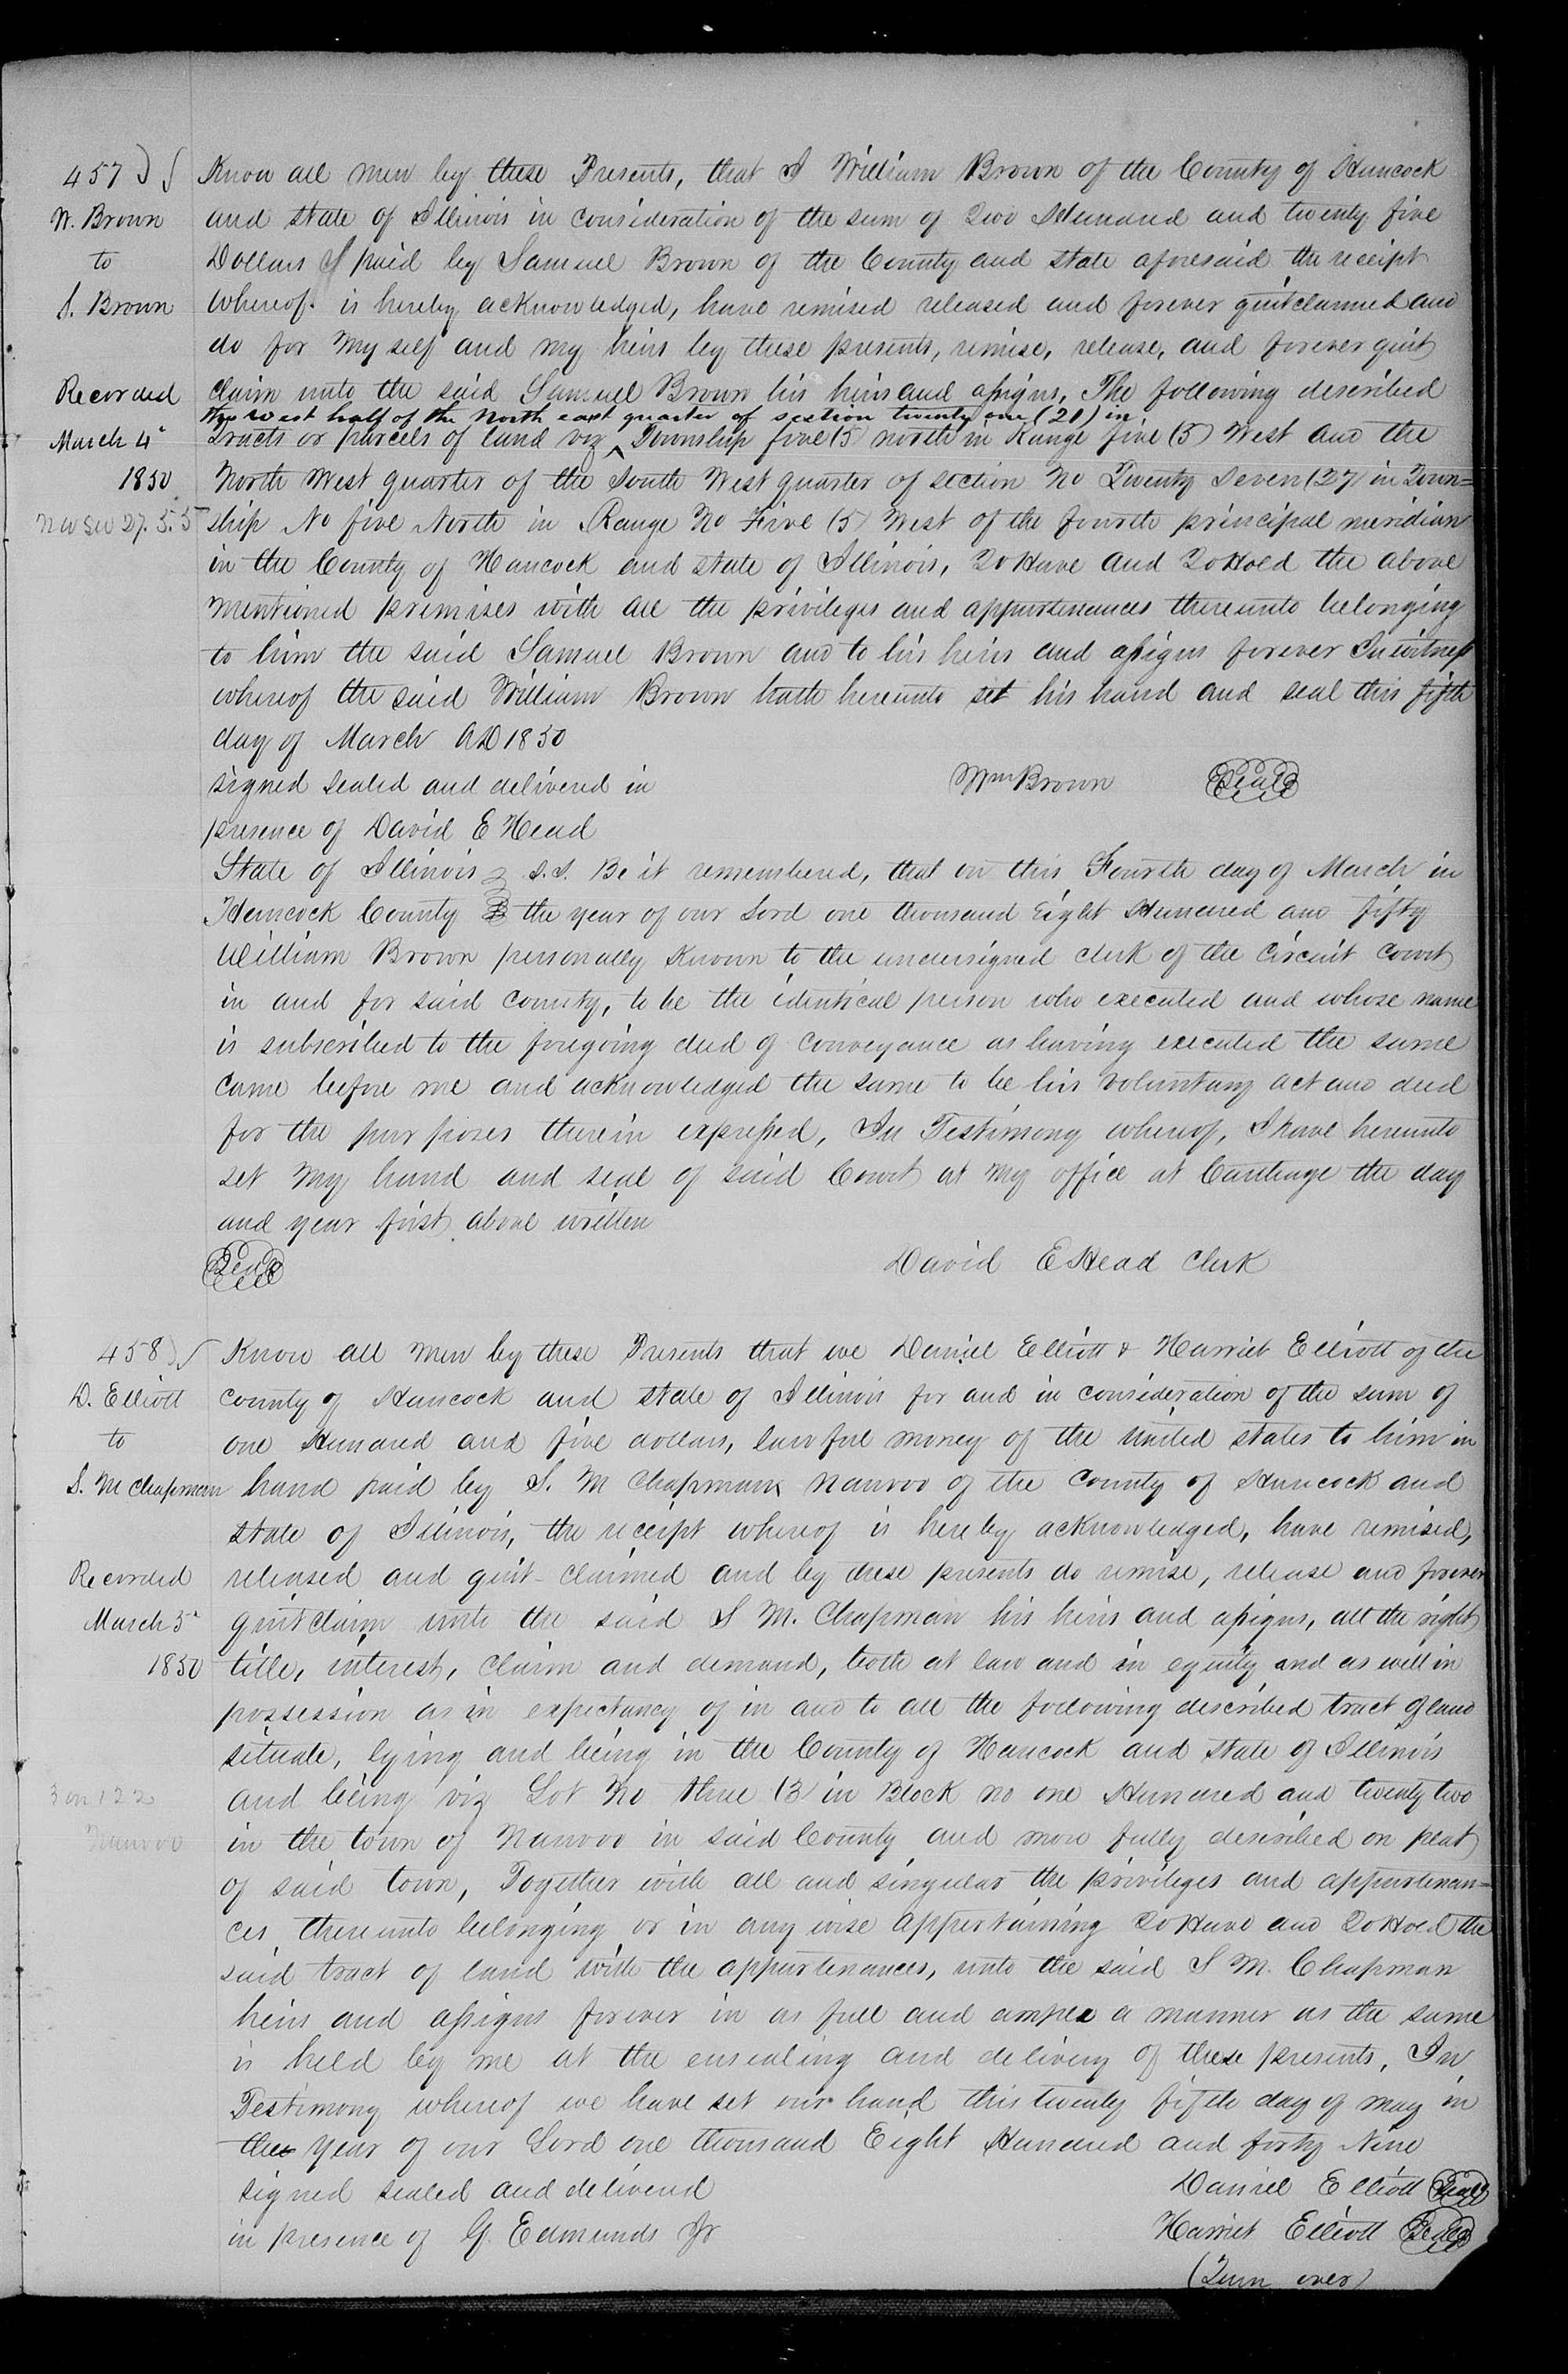 457
W. Brown
to
S. Brown
Recorded
March 4"
1850
NW SW 27. 5. 5
Know all men by these Presents, that I William Brown of the County of Hancock
and state of Illinois in consideration of the sum of Two Hundred and twenty five
Dollars paid by Samuel Brown of the County and state aforesaid the receipt
whereof is hereby acknowledged, have remised released and forever quitclaimed and
do for my self and my heirs by these presents, remise, release, and forever quit
claim unto the said Samuel Brown his heirs and assigns, The following described
the west half of the North east quarter of section twenty one (21) in
tracts or parcels of land viz ^ Township five (5) north in Range five (5) West and the
North West quarter of the South West quarter of section No Twenty Seven (27) in Town=
ship No five North in Range No Five (5) West of the fourth principal meridian
in the County of Hancock and state of Illinois, To Have and To Hold the above
mentioned premises with all the privileges and appurtenances thereunto belonging
to him the said Samuel Brown and to his heirs and assigns forever In witness
whereof the said William Brown hath hereunto set his hand and seal this fifth
day of March AD 1850
signed sealed and delivered in Wm Brown Seal
presence of David E Head
State of Illinois } S.S. Be it remembered, that on this Fourth day of March in
Hancock County } the year of our Lord one thousand Eight Hundred and fifty
William Brown personally known to the undersigned clerk of the Circuit Court
in and for said county, to be the identical person who executed and whose name
is subscribed to the foregoing deed of conveyance as having executed the same
came before me and acknowledged the same to be his voluntary act and deed
for the purposes therein expressed, In Testimony whereof, I have hereunto
set my hand and seal of said Court at my office at Carthage the day
and year first above written
Seal David E Head Clerk
458
D. Elliott
to
S. M Chapman
Recorded
March 5"
1850
3 on 122
Nauvoo
Know all men by these Presents that we Daniel Elliott & Harriet Elliott of the
county of Hancock and state of Illinois for and in consideration of the sum of
one Hundred and five dollars, lawful money of the united states to him in
hand paid by S. M Chapman Nauvoo of the County of Hancock and
state of Illinois, the receipt whereof is hereby acknowledged, have remised,
released and quit-claimed and by these presents do remise, release and forever
quitclaim unto the said S M. Chapman his heirs and assigns, all the right
title, interest, claim and demand, both at law and in equity and as well in
possession as in expectancy of in and to all the following described tract of land
situate, lying and being in the County of Hancock and state of Illinois
and being viz Lot No three (3) in Block no one Hundred and twenty two
in the town of Nauvoo in said County and more fully described on plat
of said town, Together with all and singular the privileges and appurtenan=
ces thereunto belonging or in any wise appertaining To Have and To Hold the
said tract of land with the appurtenances, unto the said S M. Chapman
heirs and assigns forever in as full and ample a manner as the same
is held by me at the ensealing and delivery of these presents, In
Testimony whereof we have set our hand this twenty fifth day of may in
the year of our Lord one thousand Eight Hundred and forty Nine
signed sealed and delivered Daniel Elliott Seal
in presence of G. Edmunds Jr Harriet Elliott Seal
(Turn over)